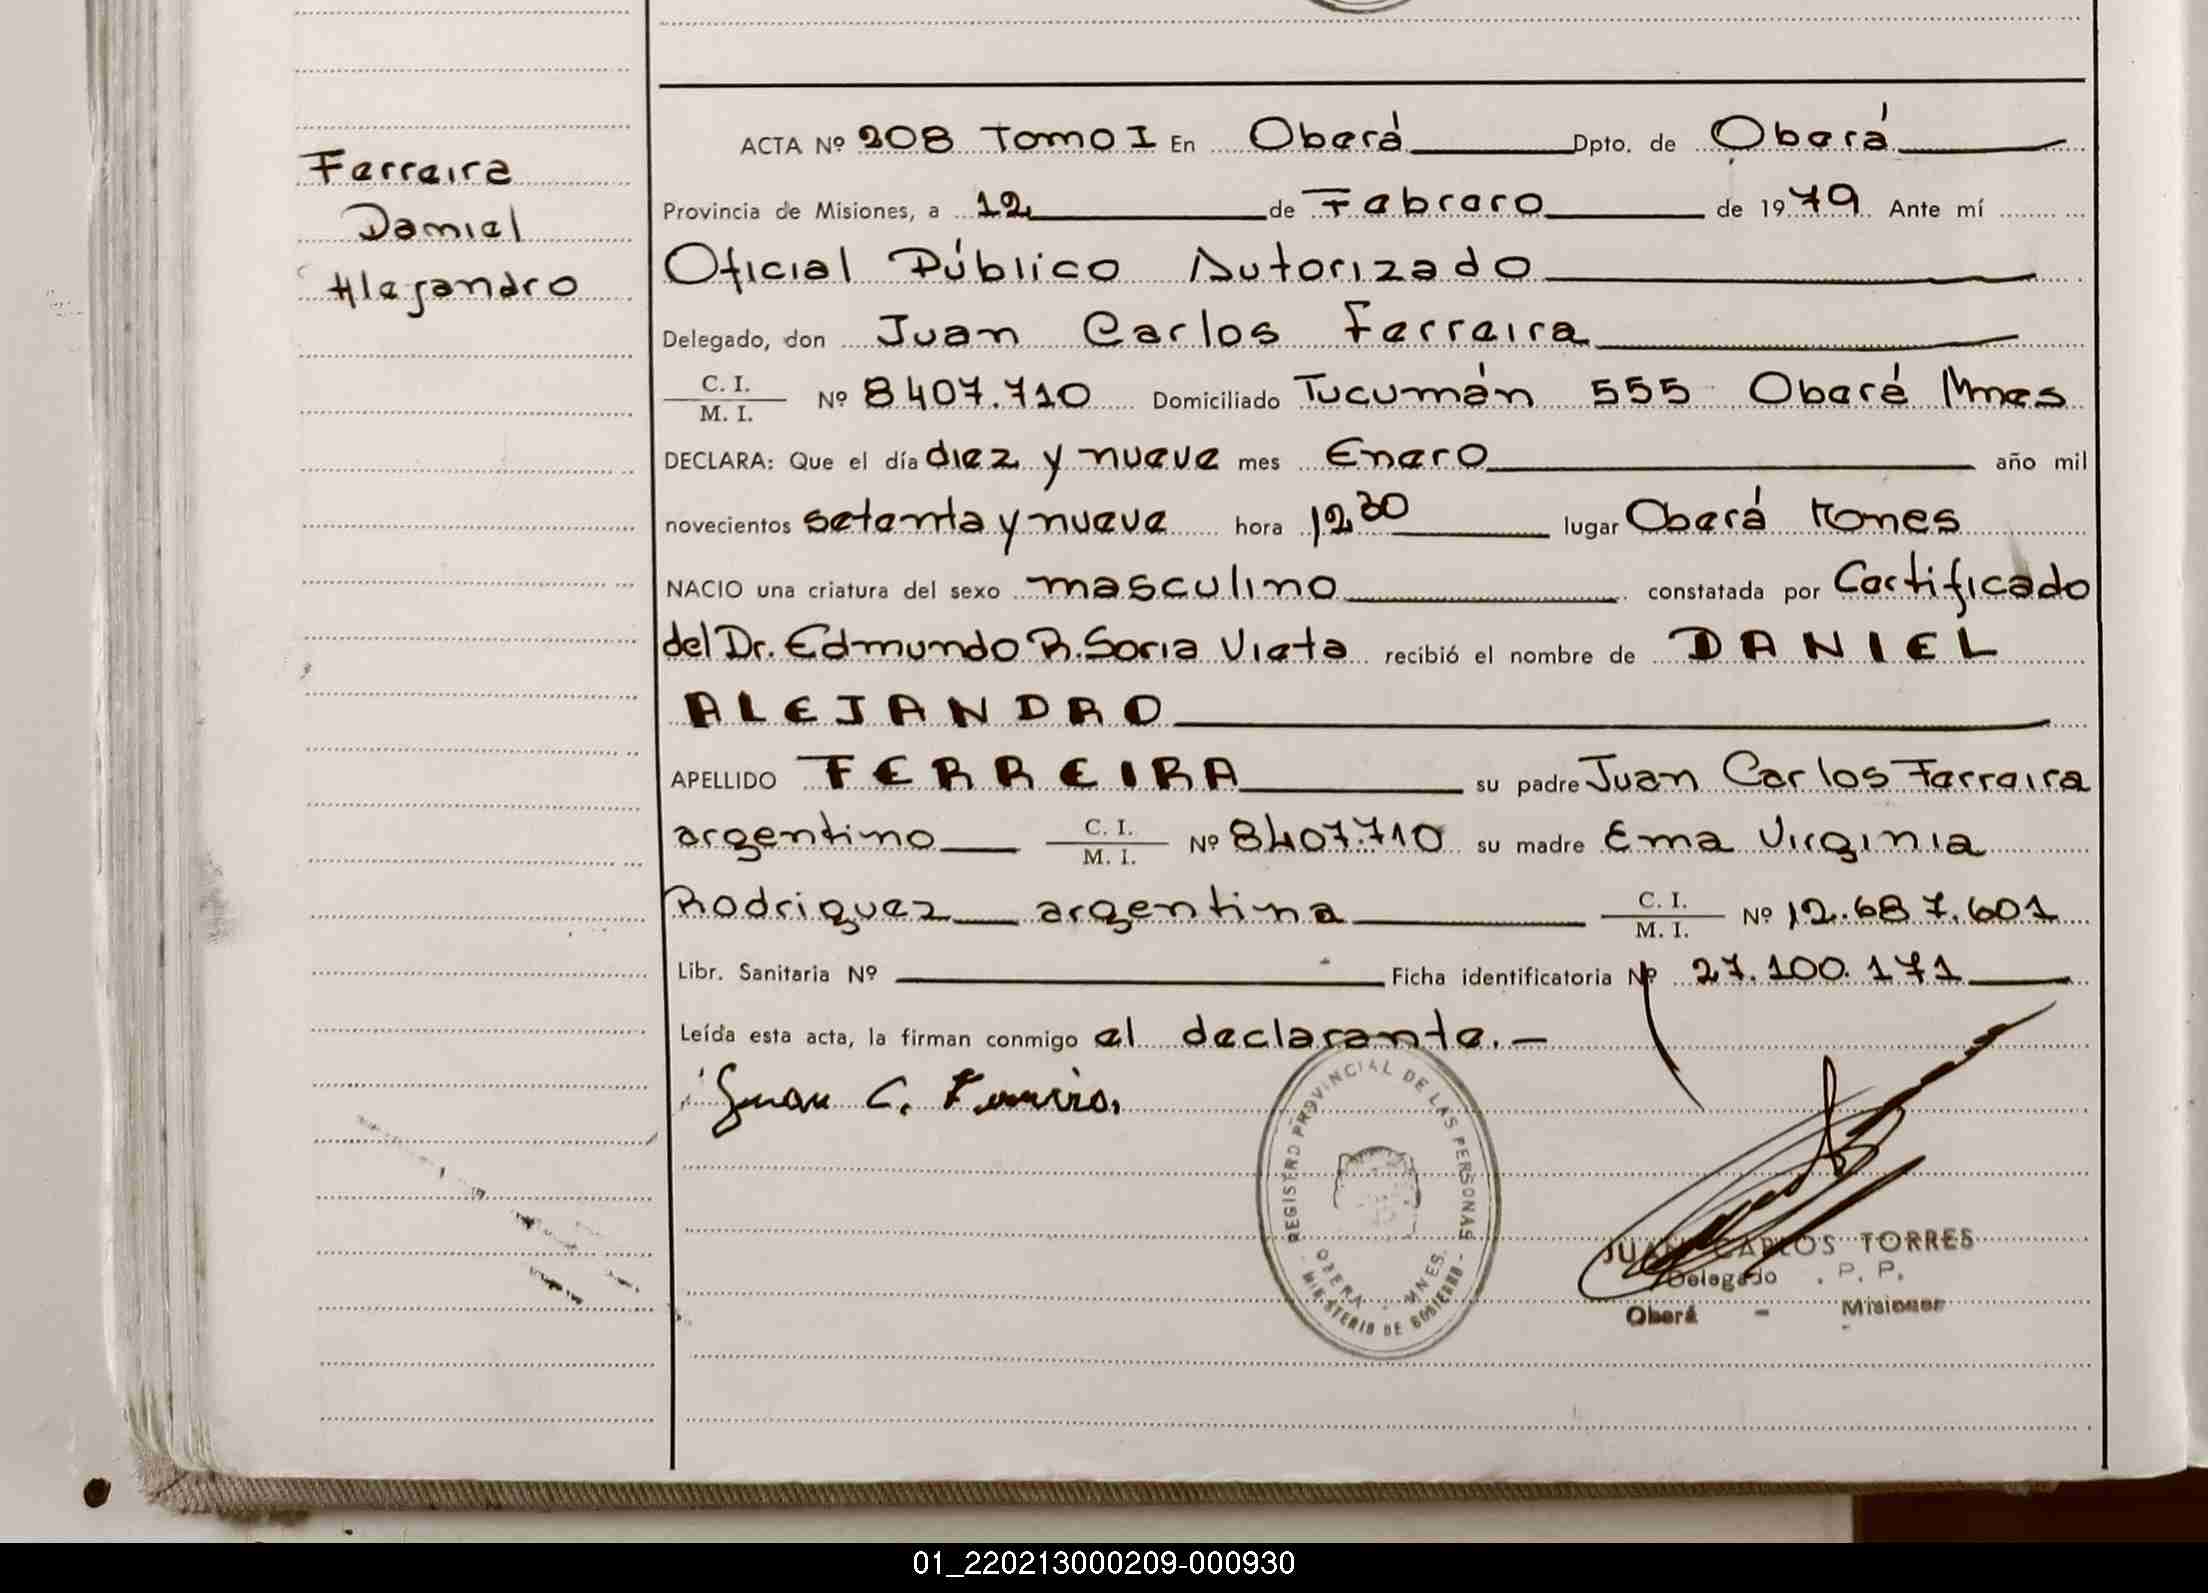 Ferreira
Daniel
Alejandro
ACTA Nº 208 Tomo I En Oberá Dpto. de Oberá
Provincia de Misiones, a 12 de Febrero de 1979 Ante mí
Oficial Público Autorizado
Delegado, don Juan Carlos Ferreira
C. I. / M. I. Nº 8407.710 Domiciliado Tucumán 555 Oberá Mnes
DECLARA: Que el día diez y nueve mes Enero año mil
novecientos setenta y nueve hora 12 30 lugar Oberá Mones
NACIO una criatura del sexo masculino constatada por Certificado
del Dr. Edmundo R. Soria Vieta recibió el nombre de DANIEL
ALEJANDRO
APELLIDO FERREIRA su padre Juan Carlos Ferreira
argentino C. I. / M. I. Nº 8407.710 su madre Ema Virginia
Rodriguez argentina C. I. / M. I. Nº 12.687.601
Libr. Sanitaria Nº Ficha identificatoria Nº 27.100.171
Leída esta acta, la firman conmigo el declarante.-
Juan C. Ferreira
REGISTRO PROVINCIAL DE LAS PERSONAS
OBERA - MNES.
- MINISTERIO DE GOBIERNO -
JUAN CARLOS TORRES
Delegado . P. P.
Oberá - Misiones
01_220213000209-000930